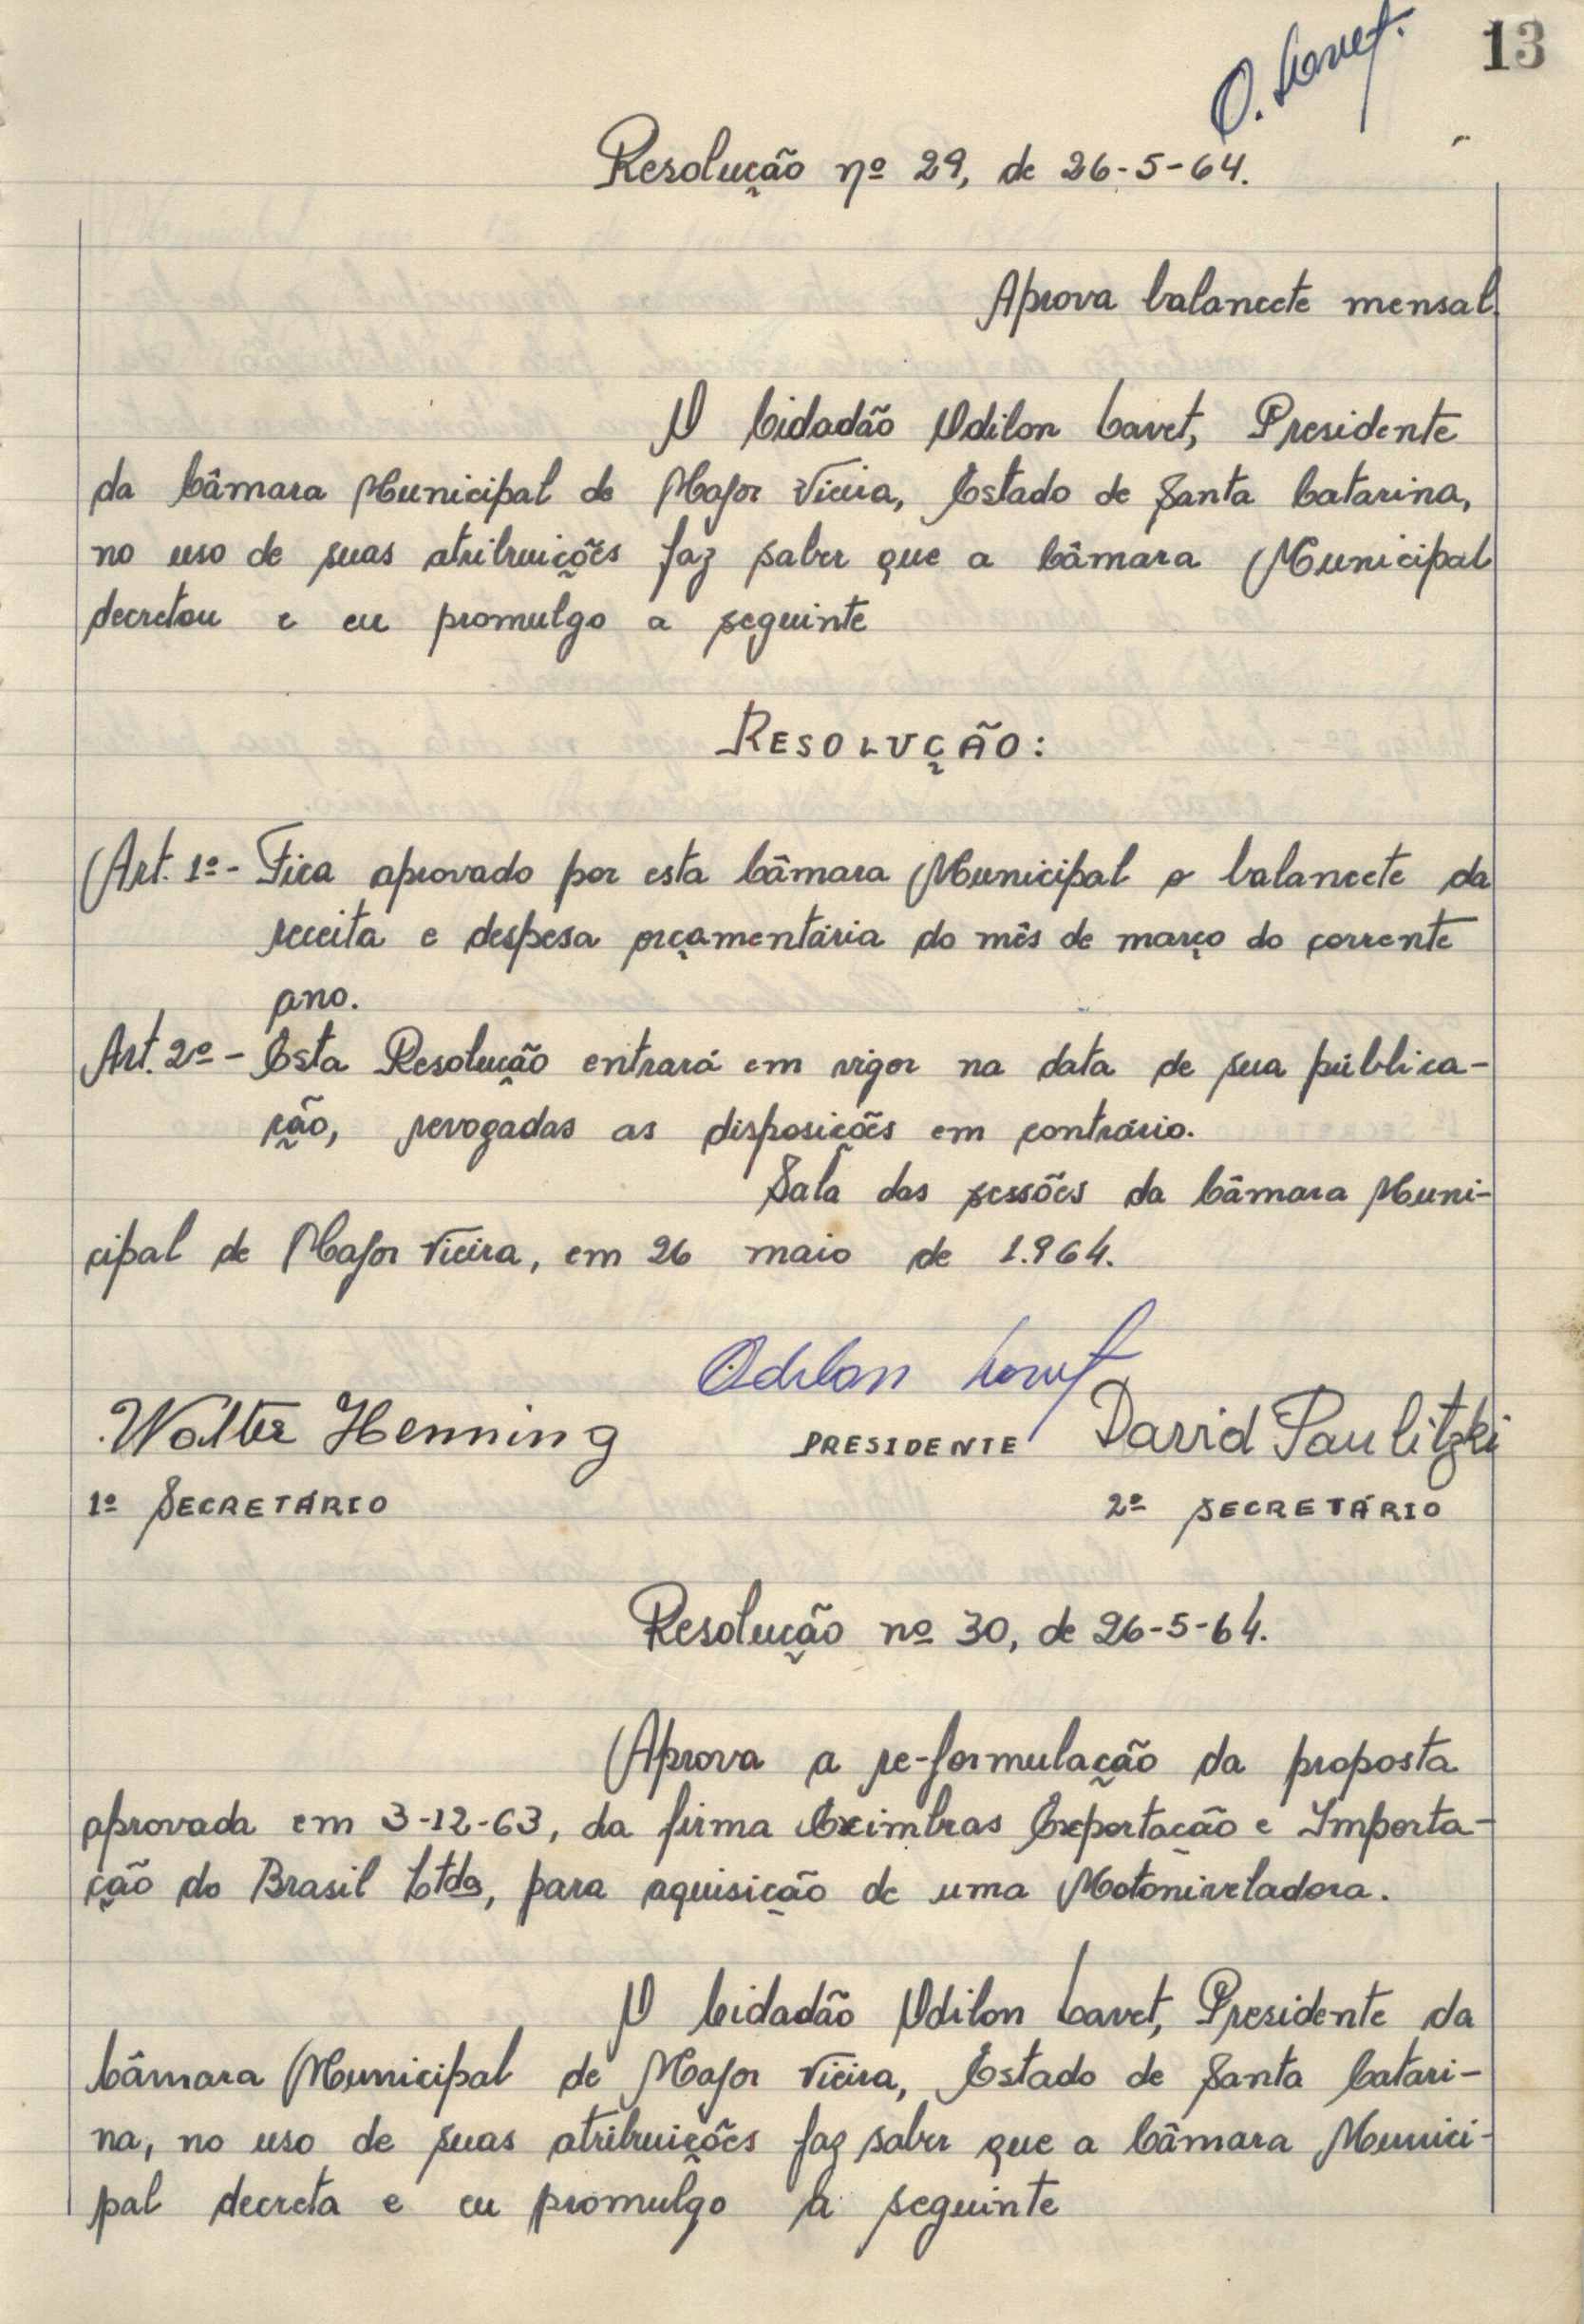 O. Cavet.
13
Resolução nº 29, de 26-5-64.
Aprova balancete mensal.
O Cidadão Odilon Cavet, Presidente
da Câmara Municipal de Major Vieira, Estado de Santa Catarina,
no uso de suas atribuições faz saber que a Câmara Municipal
decretou e eu promulgo a seguinte
RESOLUÇÃO:
Art. 1º - Fica aprovado por esta Câmara Municipal o balancete da
receita e despesa orçamentária do mês de março do corrente
ano.
Art. 2º - Esta Resolução entrará em vigor na data de sua pública-
ção, revogadas as disposições em contrário.
Sala das sessões da Câmara Muni-
cipal de Major Vieira, em 26 maio de 1.964.
Odilon Cavet
Walter Henning PRESIDENTE David Paulitzki
1º SECRETÁRIO 2º SECRETÁRIO
Resolução nº 30, de 26-5-64.
Aprova a re-formulação da proposta
aprovada em 3-12-63, da firma Eximbras Exportação e Importa-
ção do Brasil Ltda, para aquisição de uma Motoniveladora.
O Cidadão Odilon Cavet, Presidente da
Câmara Municipal de Major Vieira, Estado de Santa Catari-
na, no uso de suas atribuições faz saber que a Câmara Munici-
pal decreta e eu promulgo a seguinte